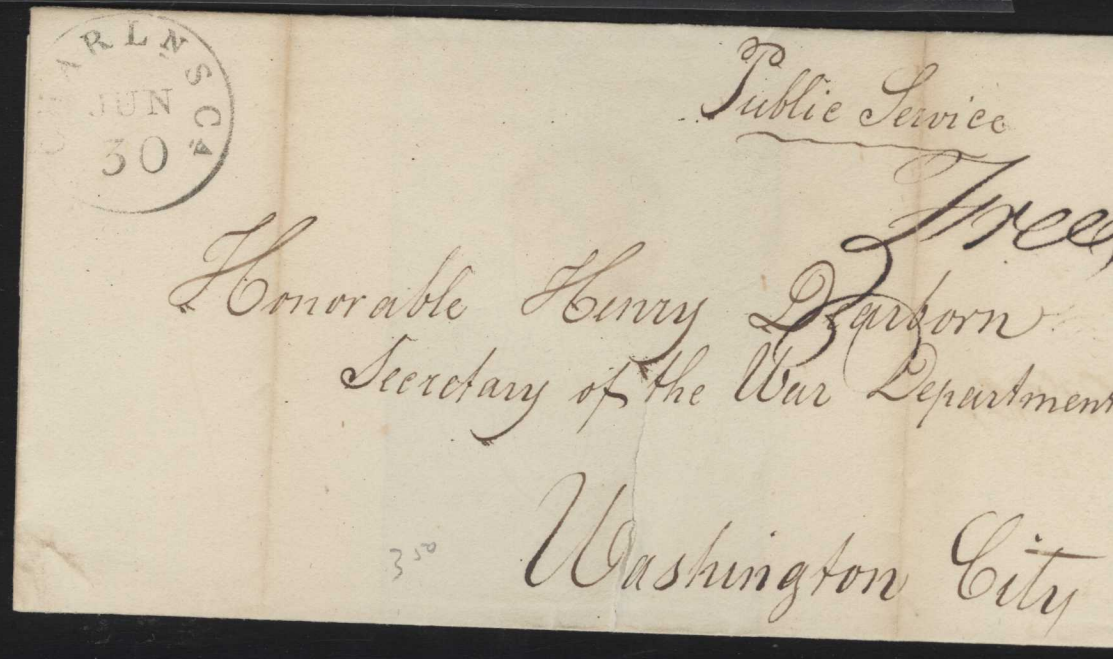 CHARLN SCA
JUN
30
Public Service
Free
Honorable Henry Dearborn
Secretary of the War Department
Washington City
3 50